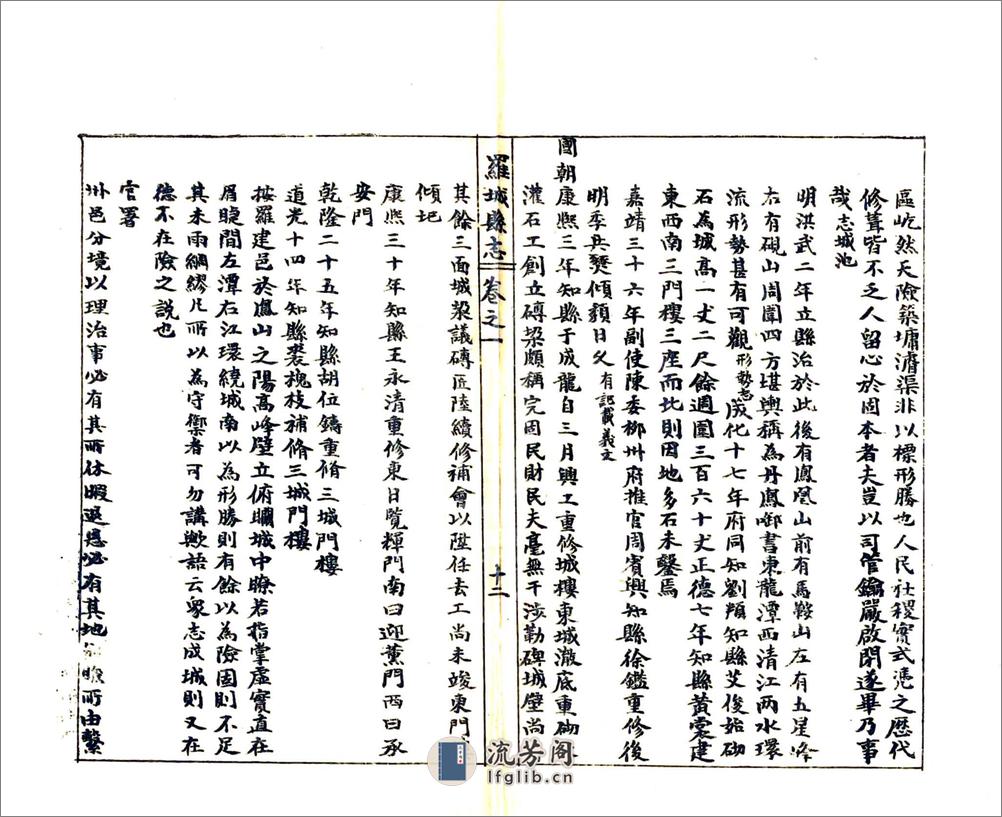 區屹然天險築墉濬渠非以標形勝也人民社稷實式憑之歷代
修葺皆不乏人留心於固本者夫豈以司管鑰嚴啟閉遂畢乃事
哉志城池
明洪武二年立縣治於此後有鳳凰山前有馬鞍山左有五星峰
右有硯山周圍四方堪輿稱為丹鳳啣書東龍潭西清江兩水環
流形勢甚有可觀形勢志成化十七年府同知劉類知縣艾俊始砌
石為城高一丈二尺餘週圍三百六十丈正德七年知縣黃裳建
東西南三門樓三座而北則因地多石未鑿焉
嘉靖三十六年副使陳委柳州府推官周賓興知縣徐鑑重修後
明季兵燹傾頹日久有記載義文
國朝康熙三年知縣于成龍自三月興工重修城樓東城澈底重砌
灌石工創立磚梁頗稱完固民財民夫毫無干涉勒碑城壁尚
羅城縣志 卷之一 十二
其餘三面城梁議磚匠陸續修補會以陞任去工尚未竣東門
傾圮
康熙三十年知縣王永清重修東曰覽輝門南曰迎薰門西曰承
安門
乾隆二十五年知縣胡位鑄重修三城門樓
道光十四年知縣裘槐枝補修三城門樓
按羅建邑於鳳山之陽高峰壁立俯瞯城中瞭若指掌虛實直在
眉睫間左潭右江環繞城南以為形勝則有餘以為險固則不足
其未雨綢繆凡所以為守禦者可勿講歟語云眾志成城則又在
德不在險之說也
官署
州邑分境以理治事必有其所休暇退息必有其地瞻所由繫
流芳阁
lfglib.cn